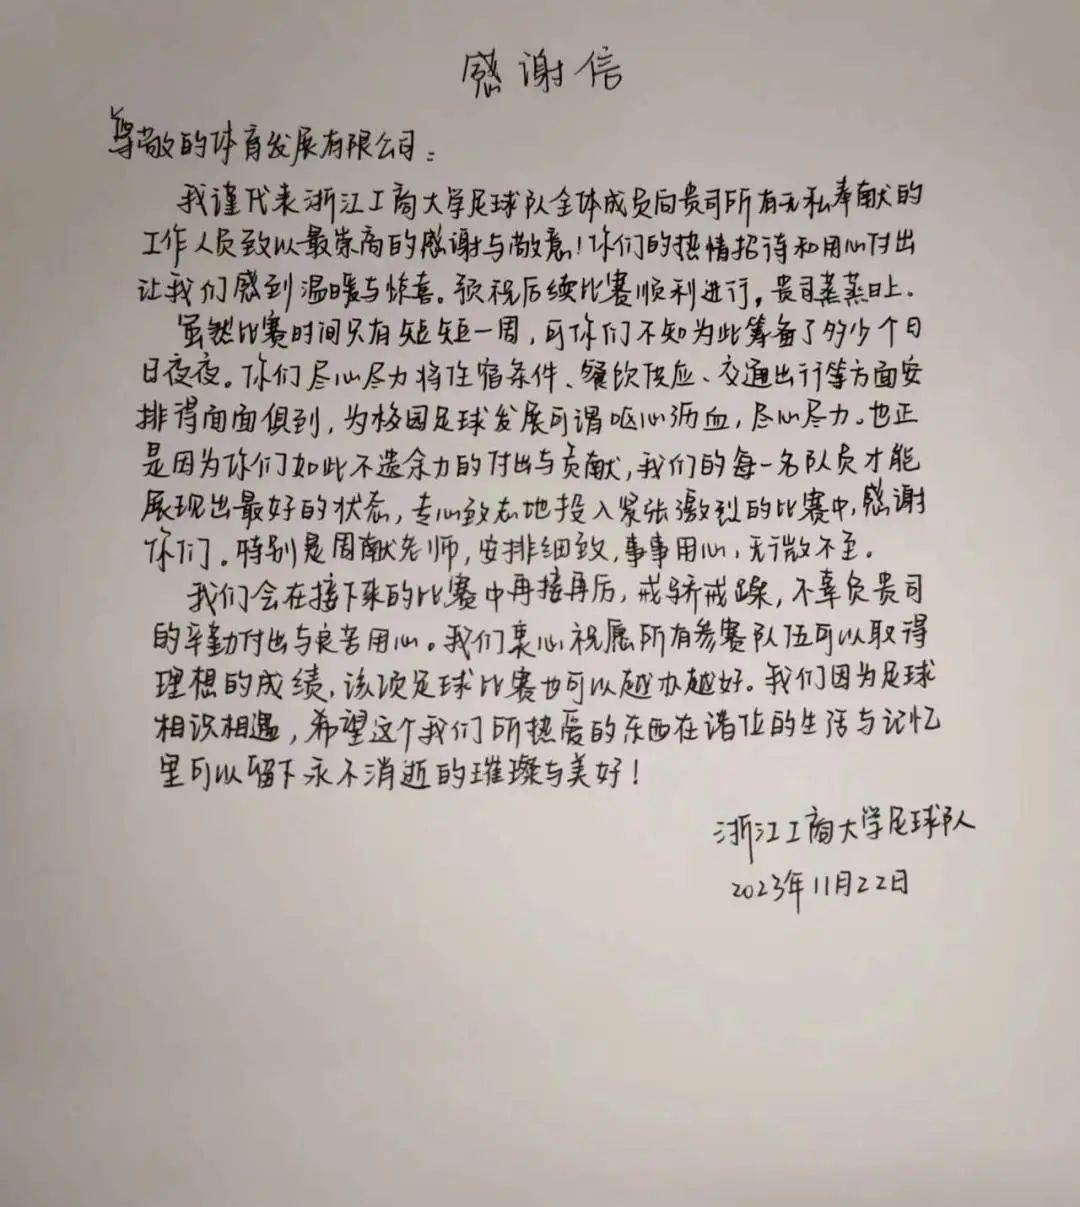 感谢信
尊敬的体育发展有限公司：
我谨代表浙江工商大学足球队全体成员向贵司所有无私奉献的
工作人员致以最崇高的感谢与敬意！你们的热情招待和用心付出
让我们感到温暖与惊喜。预祝后续比赛顺利进行，贵司蒸蒸日上。
虽然比赛时间只有短短一周，可你们不知为此筹备了多少个日
日夜夜。你们尽心尽力将住宿条件、餐饮供应、交通出行等方面安
排得面面俱到，为校园足球发展可谓呕心沥血，尽心尽力。也正
是因为你们如此不遗余力的付出与贡献，我们的每一名队员才能
展现出最好的状态，专心致志地投入紧张激烈的比赛中，感谢
你们。特别是周献老师，安排细致，事事用心，无微不至。
我们会在接下来的比赛中再接再厉，戒骄戒躁，不辜负贵司
的辛勤付出与良苦用心。我们衷心祝愿所有参赛队伍可以取得
理想的成绩，该项足球比赛也可以越办越好。我们因为足球
相识相遇，希望这个我们所热爱的东西在诸位的生活与记忆
里可以留下永不消逝的璀璨与美好！
浙江工商大学足球队
2023年11月22日